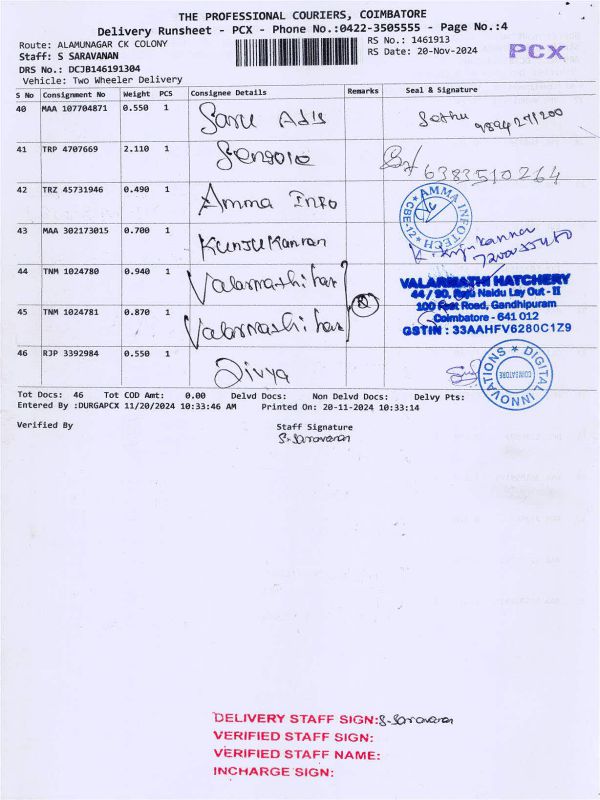 THE PROFESSIONAL COURIERS, COIMBATORE
Delivery Runsheet - PCX - Phone No.:0422-3505555 - Page No.:4
Route: ALAMUNAGAR CK COLONY
RS No.: 1461913
Staff: S SARAVANAN
RS Date: 20-Nov-2024
PCX
DRS No.: DCJB146191304
Vehicle: Two Wheeler Delivery
S No Consignment No Weight PCS Consignee Details Remarks Seal & Signature
40 MAA 107704871 0.550 1 Saru Ads
41 TRP 4707669 2.110 1 6383510264
42 TRZ 45731946 0.490 1 Amma Info
AMMA INFOTECH CBE-12
43 MAA 302173015 0.700 1 Kunjukannan
44 TNM 1024780 0.940 1 Valarmathi hat
VALARMATHI HATCHERY
44 / 90, Raju Naidu Lay Out - II
100 Feet Road, Gandhipuram
45 TNM 1024781 0.870 1 Valarmathi hat
Coimbatore - 641 012
GSTIN : 33AAHFV6280C1Z9
46 RJP 3392984 0.550 1 Divya
DIGITAL INNOVATIONS COIMBATORE
Tot Docs: 46 Tot COD Amt: 0.00 Delvd Docs: Non Delvd Docs: Delvy Pts:
Entered By :DURGAPCX 11/20/2024 10:33:46 AM Printed On: 20-11-2024 10:33:14
Verified By Staff Signature
S. Saravanan
DELIVERY STAFF SIGN: S. Saravanan
VERIFIED STAFF SIGN:
VERIFIED STAFF NAME:
INCHARGE SIGN: